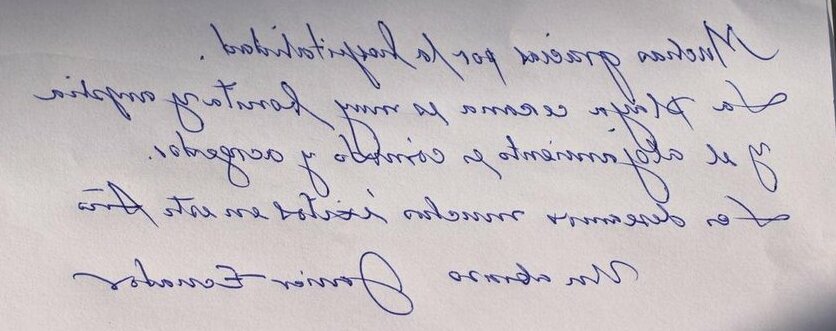 Muchas gracias por la hospitalidad.
La playa cercana es muy bonita y amplia
y el alojamiento es cómodo y acogedor.
Les deseamos muchos éxitos en este Año
Un abrazo Javier - Ecuador